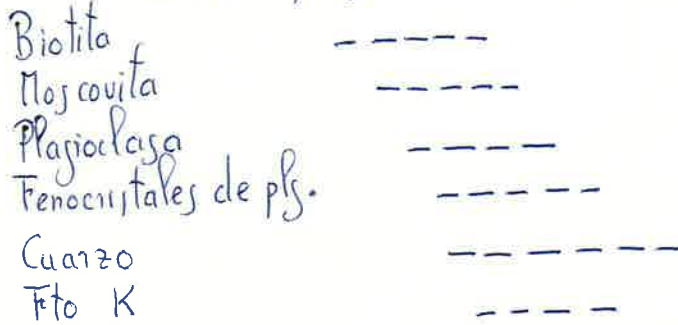 Biotita
Moscovita
Plagioclasa
Fenocristales de plg.
Cuarzo
Fto K